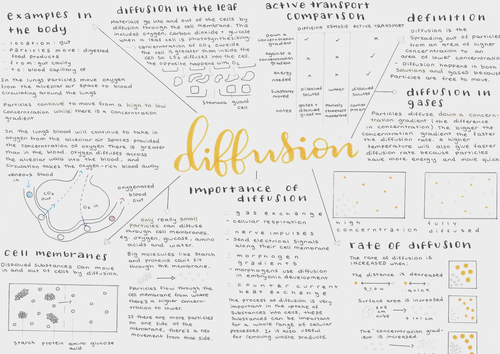 examples in
the body
- location: gut
- Particles move: digested
food products
- from: gut cavity
- to: blood capillary of
In the lungs particles move oxygen
from the alveolar air space to blood
circulating around the lungs
Particles continue to move from a high to low
concentration while there is a concentration
gradient
In the lungs blood will continue to take in
oxygen from the alveolar air spaces provided
the concentration of oxygen there is greater
than in the blood. Oxygen diffuses across
the alveolar walls into the blood, and
circulation takes the oxygen-rich blood away
venous
blood in
oxygenated
blood
out
CO₂
out
O₂ in
cell membranes
Dissolved substances can move
in and out of cells by diffusion
starch protein amino acid
glucose
diffusion in the leaf
Materials go into and out of the cells by
diffusion through the cell membrane. This
includes oxygen, carbon dioxide + glucose
when a leaf cell is photosynthesising
concentration of CO₂ outside
the cell is greater than inside the
cell so CO₂ diffuses into the cell
The opposite happens with O₂
Stomata guard
cell
active transport
comparison
DIFFUSION
OSMOSIS
ACTIVE TRANSPORT
Down a
concentration
gradient
Against a
concentration
gradient
energy
needed
Substance
moved
notes
definition
Diffusion is the
Spreading out of particles
from an area of higher
concentration to an
area of lower concentration
- Diffusion happens in both
Solutions and gases because
Particles are free to move.
diffusion in
gases
Particles diffuse down a concen-
tration gradient (the difference
in concentration) The bigger the
concentration gradient the faster
the diffusion rate. A higher
temperature will also give faster
diffusion rate because particles will
have more energy and move quicker
diffusion
Only really small
Particles can diffuse
through cell membranes.
eg. oxygen, glucose, amino
acids and water.
Big molecules like Starch
and proteins cant fit
through the membrane.
Particles flow through
the cell membrane from where
there's a higher concen-
tration to lower.
If there are more particles
on one side of the
membrane, there's a net
movement from that side.
Importance of
diffusion
- gas exchange
- cellular respiration
- nerve impulses
- Send electrical signals
along their cell membrane
- morphogen
gradients
- morphogens use diffusion
in embryonic development
- counter current
heat exchange
The process of diffusion is very
important in the uptake of
Substances into cells, these
Substances can be important
for a whole range of cellular
processes. It is also useful
for removing waste products.
high
concentration
fully
diffused
rate of diffusion
The rate of diffusion is
increased when:
The distance is decreased
Surface area is increased
The concentration gradi-
ent is increased